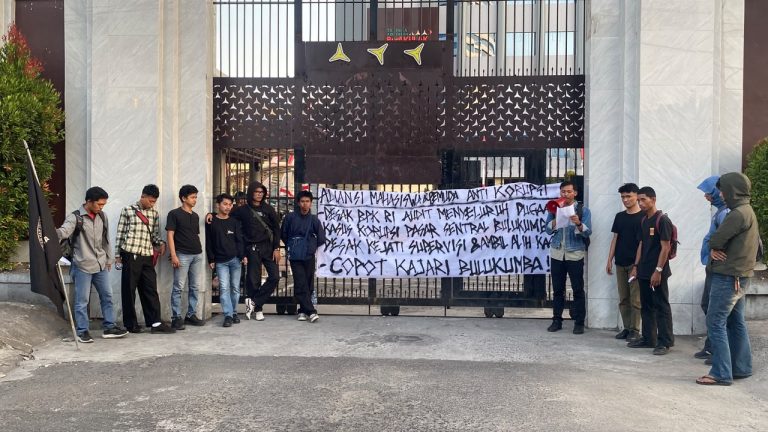 ALIANSI MAHASISWA PEMUDA ANTI KORUPSI
DESAK BPK RI AUDIT MENYELURUH DUGA
KASUS KORUPSI PASAR SENTRAL BULUKUMBA
DESAK KEJATI SUPERVISI & AMBIL ALIH KA
- COPOT KAJARI BULUKUMBA